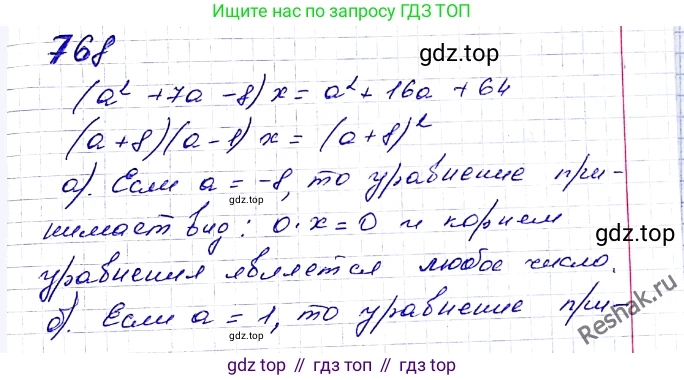 Ищите нас по запросу ГДЗ ТОП
768
гдз.top
(a² + 7a - 8) x = a² + 16a + 64
(a + 8)(a - 1) x = (a + 8)²
а). Если a = -8, то уравнение при-
гдз.top
нимает вид: 0 · x = 0 и корнем
гдз.top
уравнения является любое число.
б). Если a = 1, то уравнение при-
гдз.top
Reshak.ru
гдз top // гдз топ // gdz top